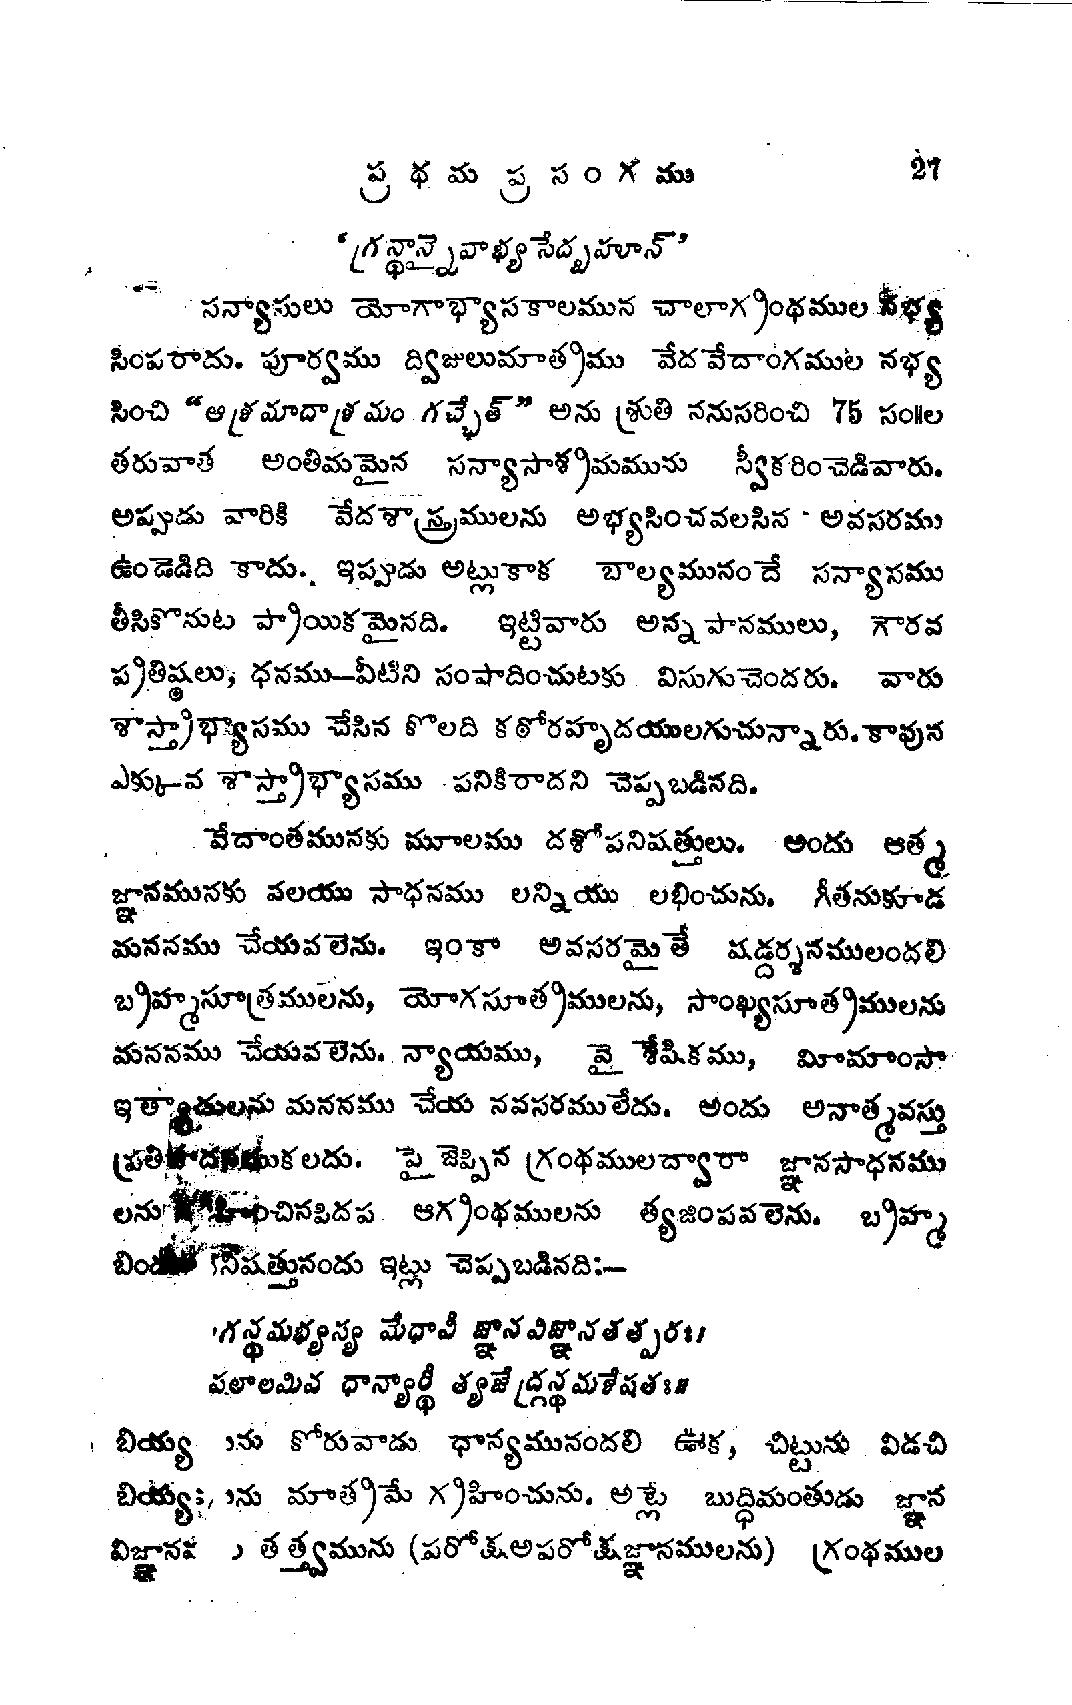 ప్రథమ ప్రసంగము 27
‘గ్రన్థాన్నైవాభ్యసేద్బహూన్’
సన్యాసులు యోగాభ్యాసకాలమున చాలాగ్రంథముల నభ్య
సింపరాదు. పూర్వము ద్విజులుమాత్రము వేదవేదాంగముల నభ్య
సించి “ఆశ్రమాదాశ్రమం గచ్ఛేత్” అను శ్రుతి ననుసరించి 75 సంllల
తరువాత అంతిమమైన సన్యాసాశ్రమమును స్వీకరించెడివారు.
అప్పుడు వారికి వేదశాస్త్రములను అభ్యసించవలసిన అవసరము
ఉండెడిది కాదు. ఇప్పుడు అట్లుకాక బాల్యమునందే సన్యాసము
తీసికొనుట ప్రాయికమైనది. ఇట్టివారు అన్నపానములు, గౌరవ
ప్రతిష్ఠలు, ధనము—వీటిని సంపాదించుటకు విసుగుచెందరు. వారు
శాస్త్రాభ్యాసము చేసిన కొలది కఠోరహృదయులగుచున్నారు. కావున
ఎక్కువ శాస్త్రాభ్యాసము పనికిరాదని చెప్పబడినది.
వేదాంతమునకు మూలము దశోపనిషత్తులు. అందు ఆత్మ
జ్ఞానమునకు వలయు సాధనము లన్నియు లభించును. గీతనుకూడ
మననము చేయవలెను. ఇంకా అవసరమైతే షడ్దర్శనములందలి
బ్రహ్మసూత్రములను, యోగసూత్రములను, సాంఖ్యసూత్రములను
మననము చేయవలెను. న్యాయము, వైశేషికము, మీమాంసా
ఇత్యాదులను మననము చేయ నవసరములేదు. అందు అనాత్మవస్తు
ప్రతిపాదనయుకలదు. పైజెప్పిన గ్రంథములద్వారా జ్ఞానసాధనము
లను చినపిదప ఆగ్రంథములను త్యజింపవలెను. బ్రహ్మ
నిషత్తునందు ఇట్లు చెప్పబడినది:—
‘గన్థమభ్యస్య మేధావీ జ్ఞానవిజ్ఞానతత్పరః।
పలాలమివ ధాన్యార్థీ త్యజేద్గ్రన్థమశేషతః॥
ను కోరువాడు ధాన్యమునందలి ఊక, చిట్టును విడచి
ను మాత్రమే గ్రహించును. అట్లే బుద్ధిమంతుడు జ్ఞాన
తత్త్వమును (పరోక్షఅపరోక్షజ్ఞానములను) గ్రంథముల